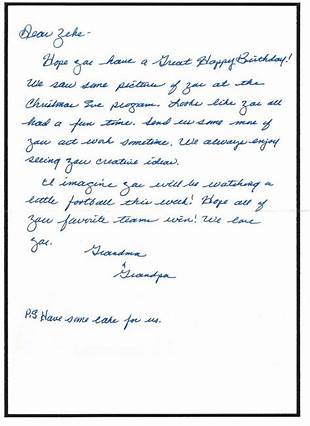 Dear Zeke-
Hope you have a Great Happy Birthday!
We saw some picture of you at the
Christmas Eve program. Looks like you all
had a fun time. Send us some more of
your art work sometime. We always enjoy
seeing your creative ideas.
I imagine you will be watching a
little football this week! Hope all of
your favorite teams win! We love
you.
Grandma
&
Grandpa
P.S Have some cake for us.